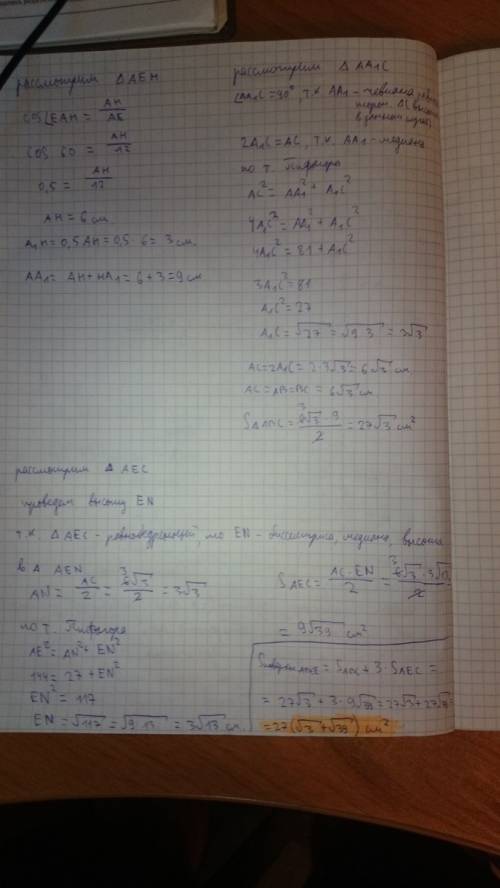 рассмотрим △ AEH
cos∠EAH = AH/AE
cos 60 = AH/12
0,5 = AH/12
AH = 6 см
A₁H = 0,5 AH = 0,5 · 6 = 3 см.
AA₁ = AH + HA₁ = 6 + 3 = 9 см
рассмотрим △ AA₁C
∠AA₁C = 90°, т.к. AA₁ -
2A₁C = AC, т.к. AA₁ - медиана
по т. Пифагора
AC² = AA₁² + A₁C²
4A₁C² = AA₁² + A₁C²
4A₁C² = 81 + A₁C²
3A₁C² = 81
A₁C² = 27
A₁C = √27 = √9·3 = 3√3
AC = 2A₁C = 2·3√3 = 6√3 см.
AC = AB = BC = 6√3 см
S△ABC = 6√3 · 9 / 2 = 27√3 см²
рассмотрим △ AEC
проведем высоту EN
т.к. △ AEC - равнобедренный, то EN - биссектриса, медиана, высота
в △ AEN
AN = AC/2 = 6√3/2 = 3√3
по т. Пифагора
AE² = AN² + EN²
144 = 27 + EN²
EN² = 117
EN = √117 = √9·13 = 3√13 см.
S AEC = AC · EN / 2 = 6√3 · 3√13 / 2
= 9√39 см²
= S + 3 · S AEC =
= 27√3 + 3 · 9√39 = 27√3 + 27√39 =
= 27(√3 + √39) см²